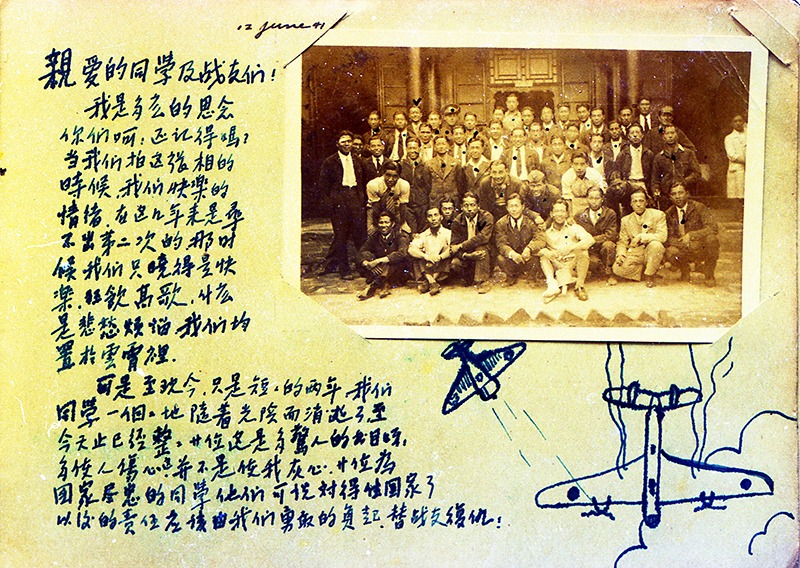 12 June 41
親愛的同學及战友们!
我是多么的思念
你们呵!还记得嗎?
当我们拍这張相的
時候,我们快樂的
情绪,在这几年来是尋
不出第二次的,那时
候我们只曉得是快
樂,狂飲高歌,什么
是悲愁煩惱,我们均
置於雲霄裡.
可是至现今,只是短〻的两年,我们
同學一個〻地隨着光陰而消逝了至
今天止已經整〻廿位这是多驚人的数目呀,
多使人傷心这並不是使我灰心,廿位為
国家尽忠的同學他们可说对得住国家了
以后的責任应该由我们勇敢的負起,替战友復仇!